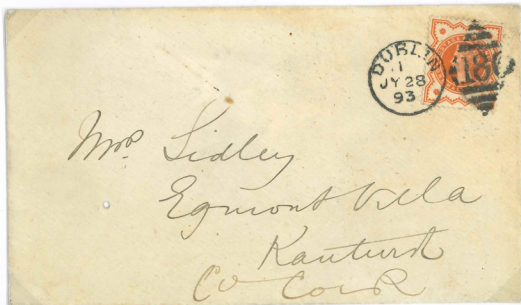 DUBLIN
1
JY 28
93
186
Mrs Sidley
Egmont Villa
Kanturk
Co Cork